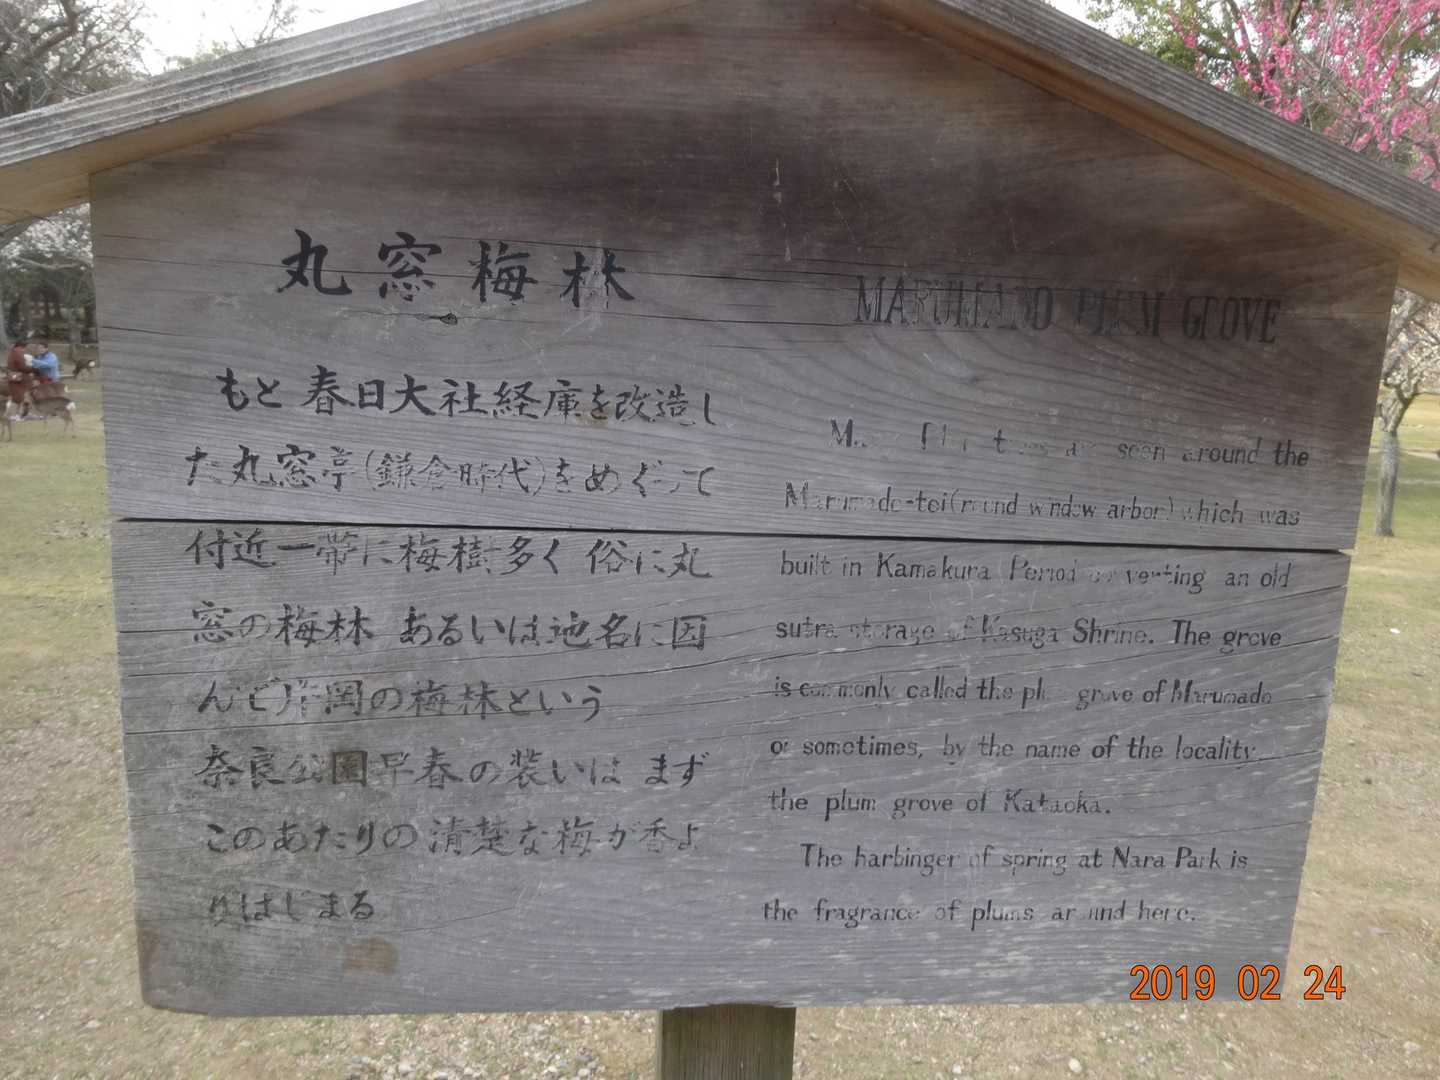 丸窓梅林
もと春日大社経庫を改造し
た丸窓亭(鎌倉時代)をめぐって
付近一帯に梅樹多く 俗に丸
窓の梅林 あるいは地名に因
んで片岡の梅林という
奈良公園早春の装いは まず
このあたりの清楚な梅が香よ
りはじまる
MARUMADO PLUM GROVE
trees are seen around the
Marumado-tei(round window arbor) which was
built in Kamakura Period converting an old
sutra storage of Kasuga Shrine. The grove
is commonly called the plum grove of Marumado
or sometimes, by the name of the locality,
the plum grove of Kataoka.
The harbinger of spring at Nara Park is
the fragrance of plums around here.
2019 02 24